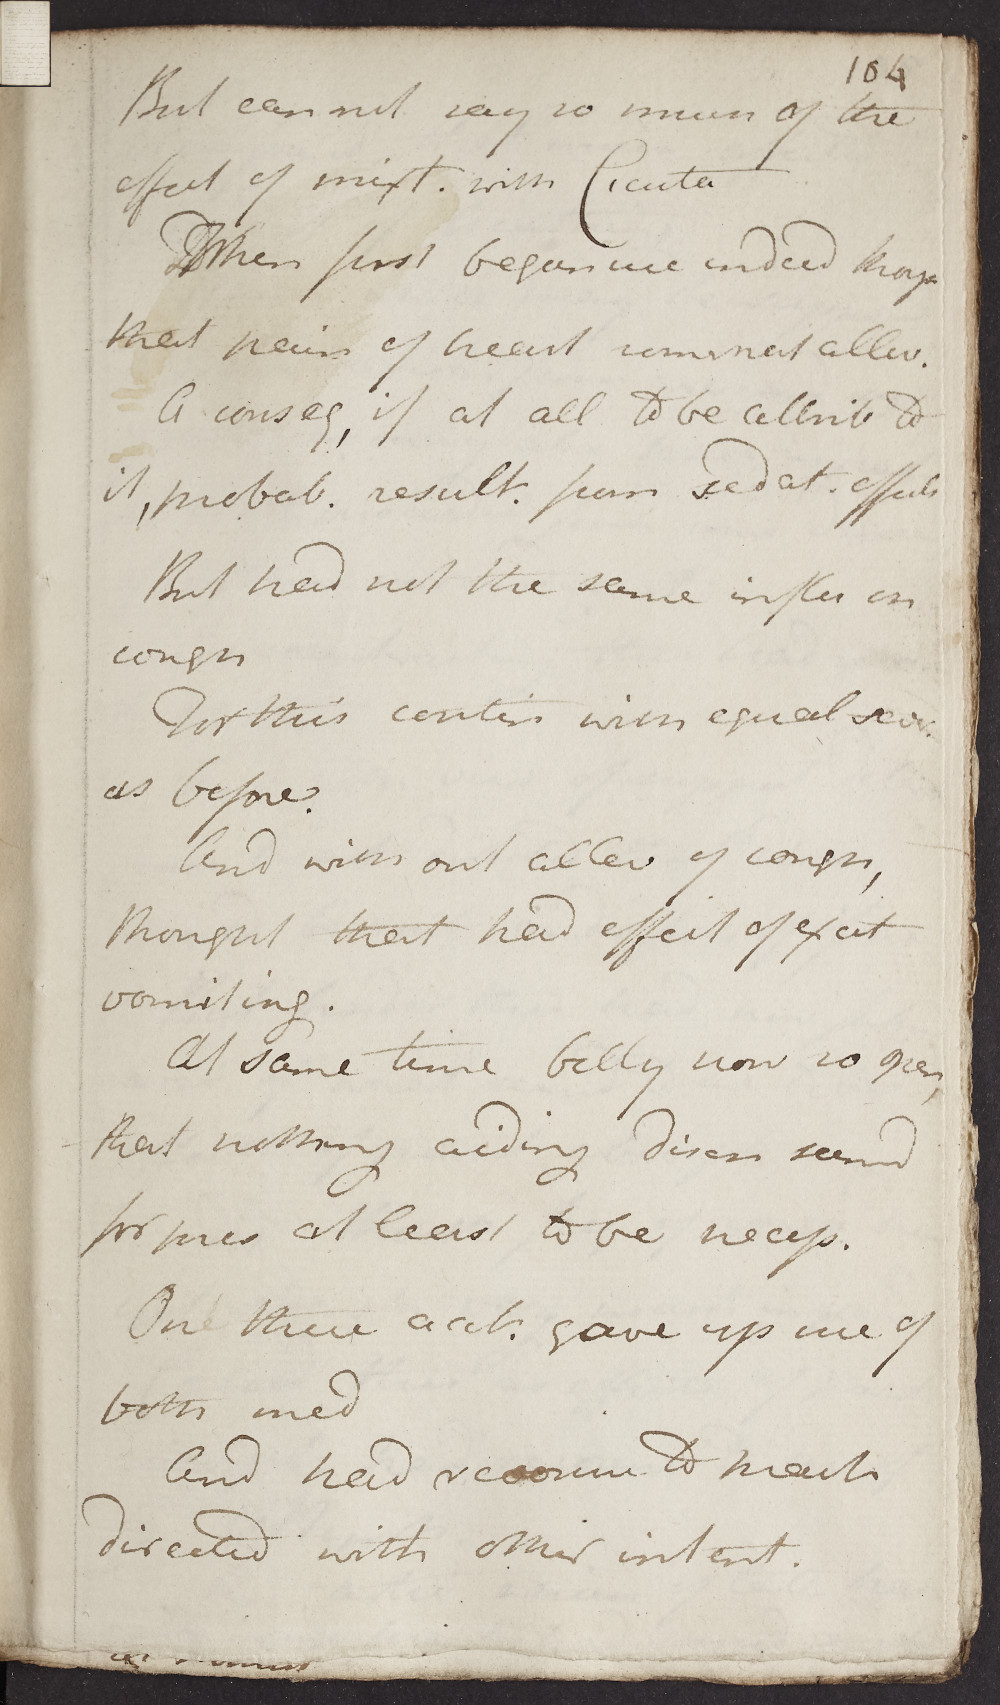 104
But can not say so much of the
effect of mixt. with Cicuta
When first began use indeed thought
that pain of heart somewhat allev.
A conseq, if at all to be attrib to
it, probab. result. from sedat. effects
But had not the same influ on
cough
For this contin with equal sev.
as before.
And with out allev of cough,
thought that had effect of excit
vomiting.
At same time belly now so open,
that nothing aiding disch seemd
for pres at least to be necess.
On these acct. gave up use of
both med
And had recourse to
directed with other intent.